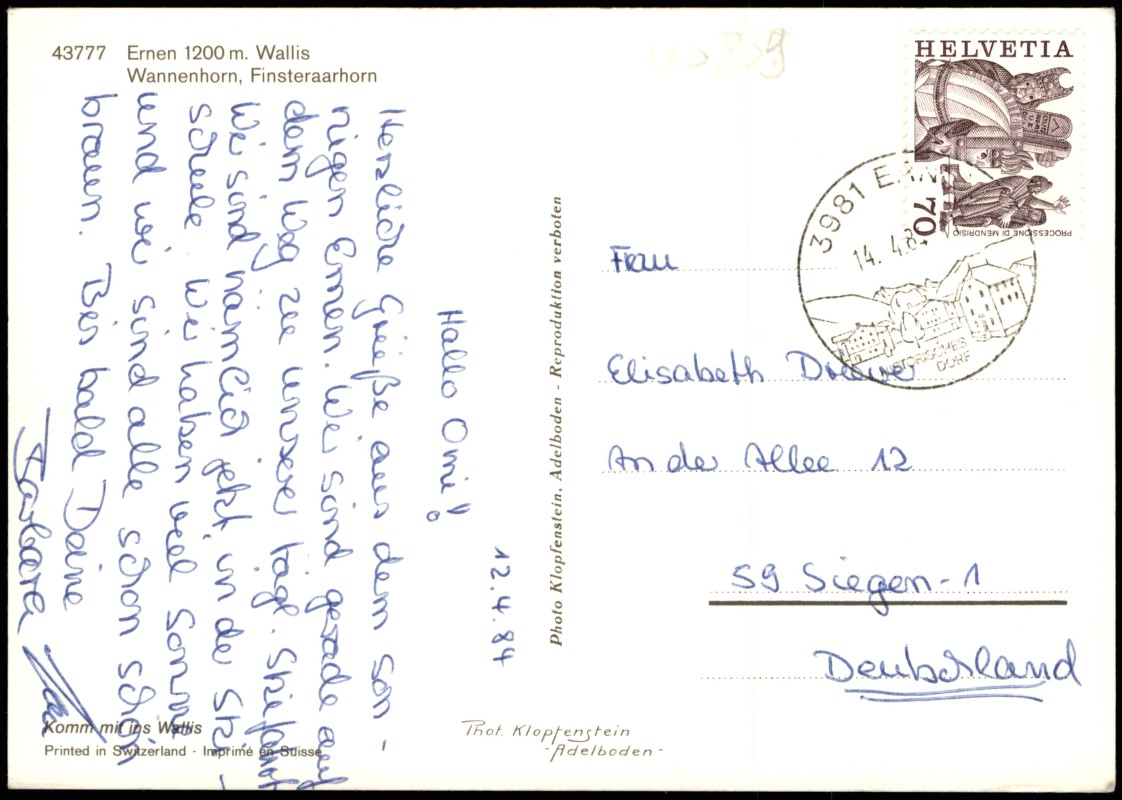 43777 Ernen 1200 m. Wallis
Wannenhorn, Finsteraarhorn
12.4.84
Hallo Omi!
Herzliche Grüße aus dem son-
nigen Ernen. Wir sind gerade auf
dem Weg zu unserer tägl. Skifahrt
Wir sind nämlich jetzt in der Ski-
schule. Wir haben viel Sonne
und wir sind alle schon schön
braun. Bis bald Deine
Barbara
Komm mit ins Wallis
Printed in Switzerland - Imprimé en Suisse
Photo Klopfenstein, Adelboden - Reproduktion verboten
Phot. Klopfenstein
- Adelboden -
HELVETIA
70
PROCESSIONE DI MENDRISIO
3981 ERNEN
14. 4.84
HISTORISCHES
DORF
Frau
Elisabeth
An der Allee 12
59 Siegen-1
Deutschland